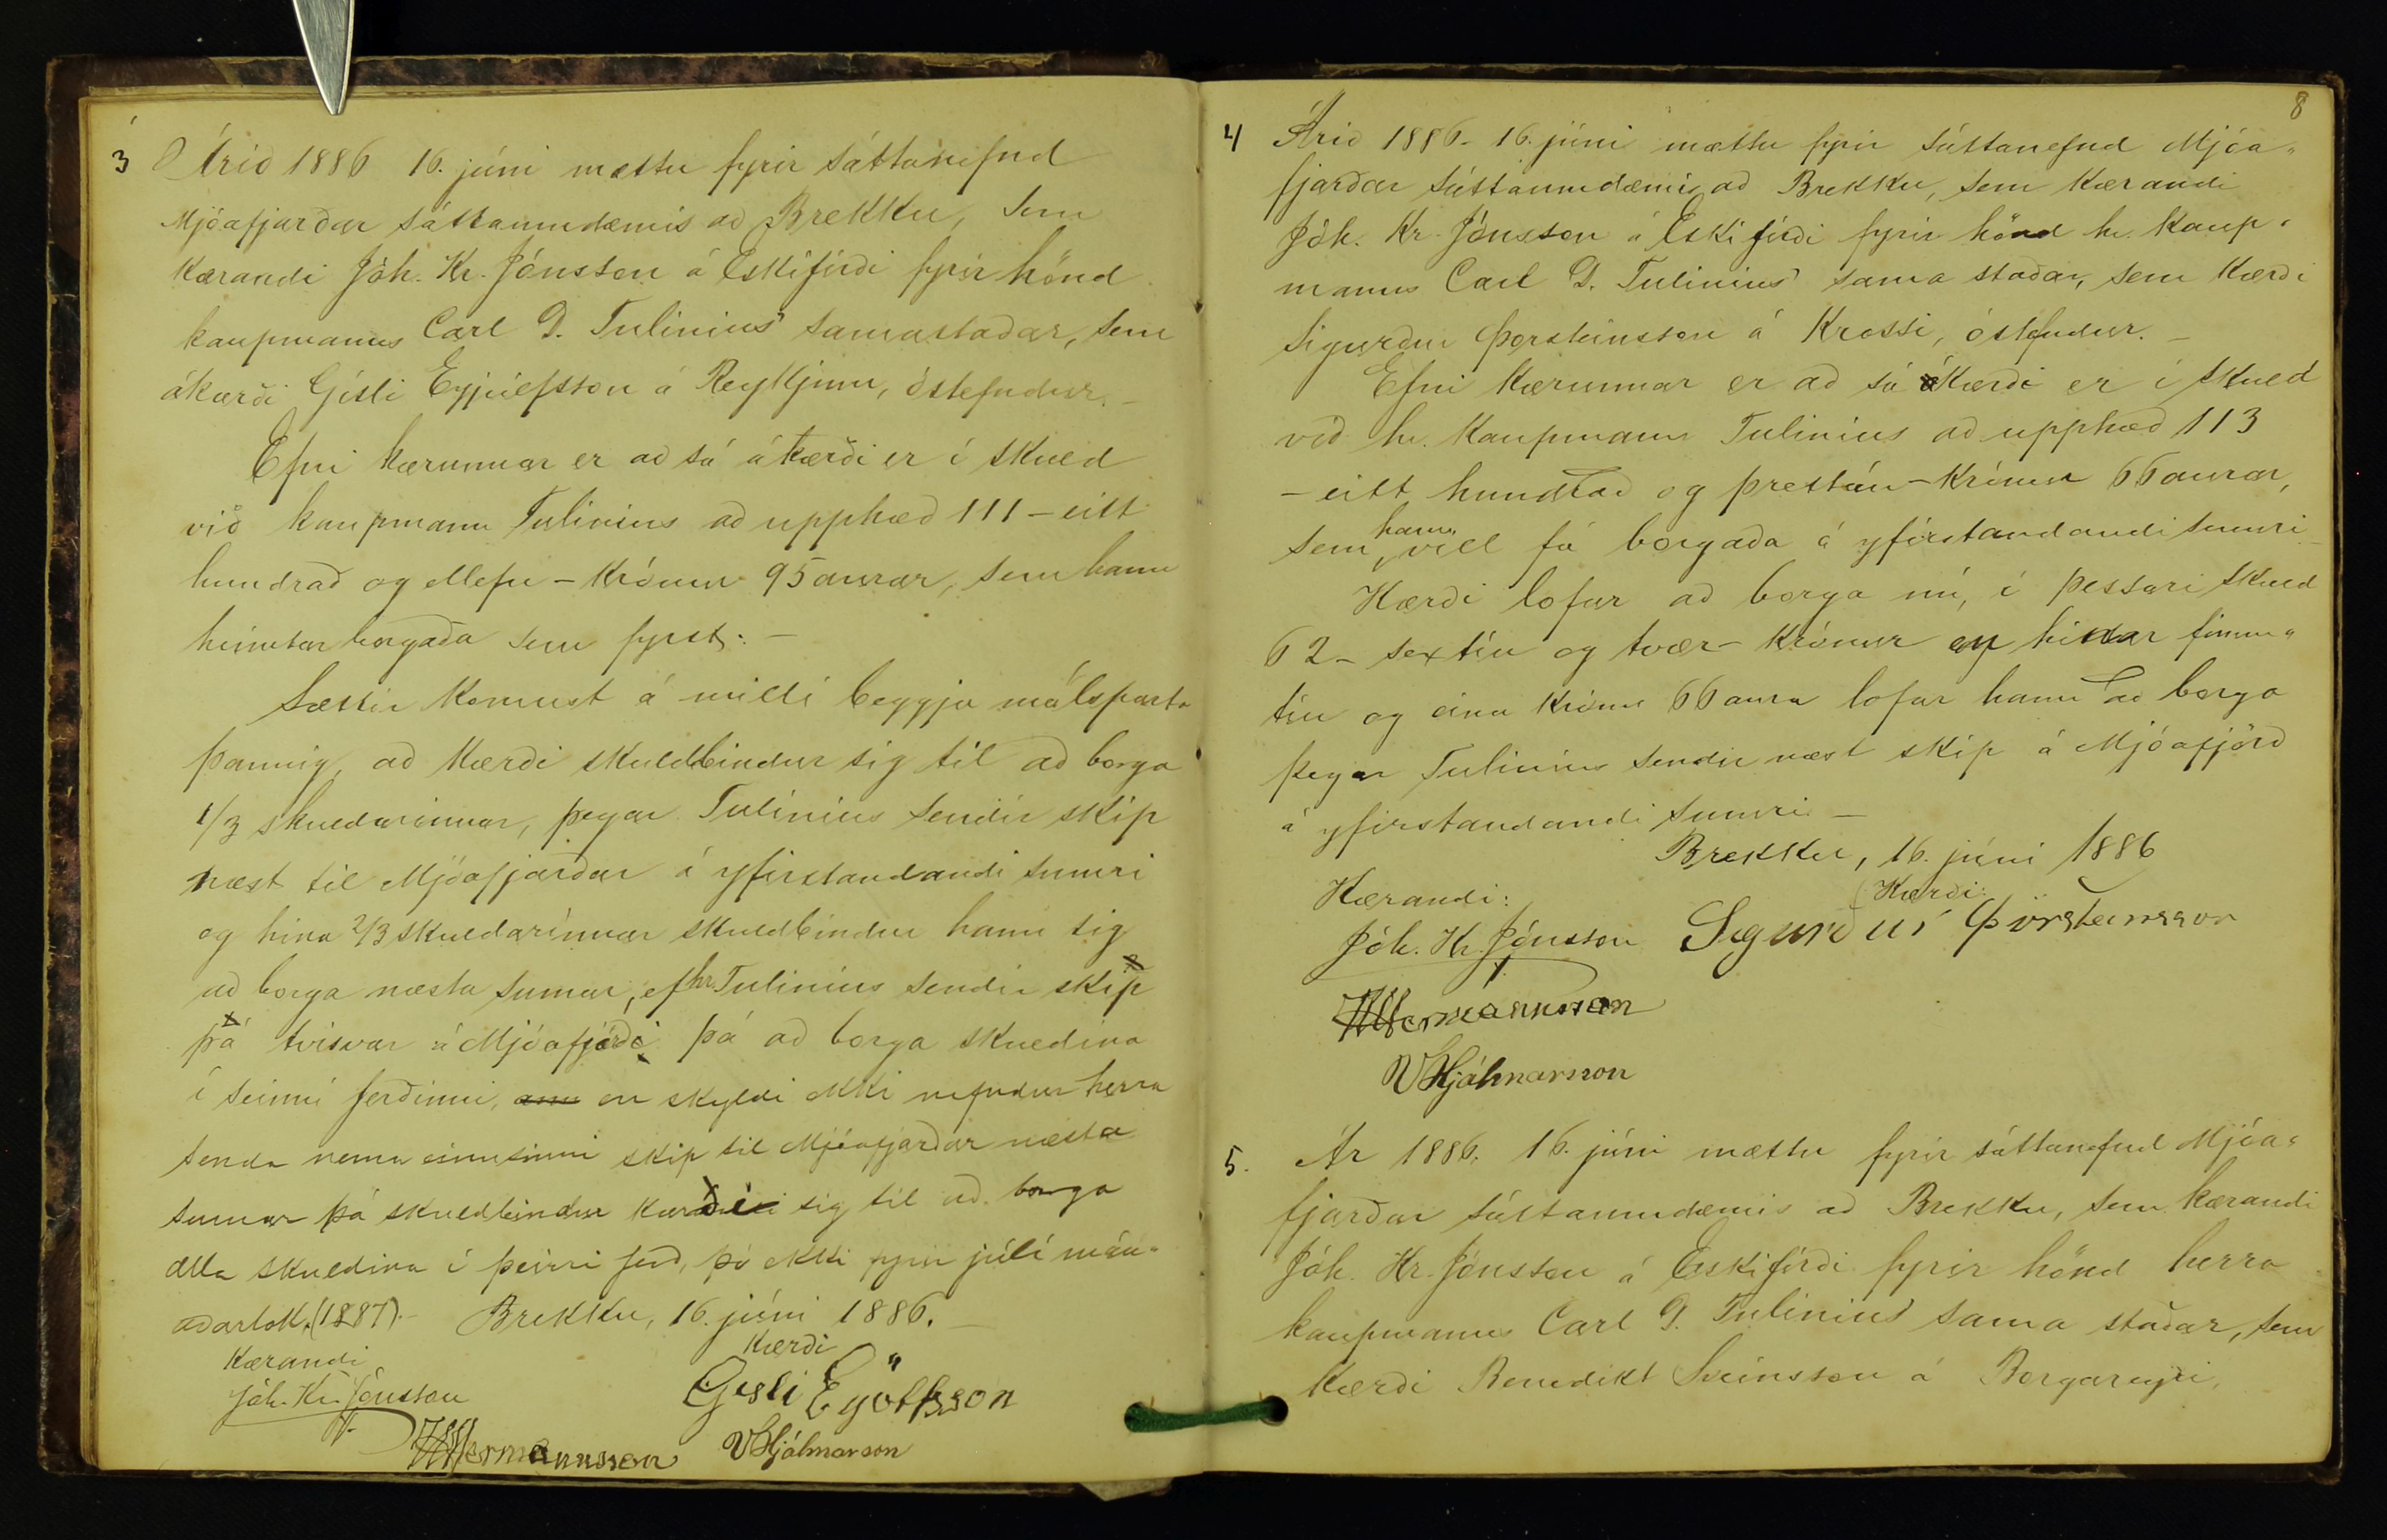 3 Árið 1886 16. júni mættu fyrir sáttanefnd
Mjóafjarðar sáttaumdæmis að Brekku, sem
kærandi Jóh. Kr. Jónsson á Eskifirði fyrir hönd
kaupmanns Carl D. Tulinius' samastaðar, sem
ákærði Gísli Eyjúlfsson á Reykjum, óstefndur. –
Efni kærunnar er að sá ákærði er í skuld
við kaupmann Tulinius að upphæð 111 – eitt
hundrað og ellefu – krónur 95 aurar, sem hann
heimtar borgaða sem fyrst. –
Sættir komust á milli beggja málsparta
þannig, að kærði skuldbindur sig til að borga
1/3 skuldarinnar, þegar Tulinius sendir skip
næst til Mjóafjarðar á yfirstandandi sumri
og hina 2/3 skuldarinnar skuldbindur hann sig
að borga næsta sumar, ef hr. Tulinius sendir skip
þá tvisvar á Mjóafjörð, þá að borga skuldina
í seinni ferðinni, en skyldi ekki nefndur herra
senda nema einusinni skip til Mjóafjarðar næsta
sumar þá skuldbindur kærði sig til að borga
alla skuldina í þeirri ferð, þó ekki fyrir júlí mán-
aðarlok (1887). – Brekku, 16. júní 1886. –
Kærandi Kærði
Jóh. Kr. Jónsson Gísli Eyólfsson
HHermannsson VHjálmarson
8
4 Árið 1886. 16. júni mættu fyrir sáttanefnd Mjóa-
fjarðar sáttaumdæmis að Brekku, sem kærandi
Jóh. Kr. Jónsson á Eskifirði fyrir hönd hr. kaup-
manns Carl D. Tulinius' sama staðar, sem kærði
Sigurður Þorsteinsson á Krossi, óstefndur. –
Efni kærunnar er að sá kærði er í skuld
við hr. kaupmann Tulinius að upphæð 113
– eitt hundrað og þrettán – krónur 66 aurar,
sem hann vill fá borgaða á yfirstandandi sumri –
Kærði lofar að borga nú, í þessari skuld
62 – sextíu og tvær – krónur en hinar fimm-
tíu og eina krónu 66 aura lofar hann að borga
þegar Tulinius sendir næst skip á Mjóafjörð
á yfirstandandi sumri –
Brekku, 16. júní 1886
Kærandi: Kærði:
Jóh. Kr. Jónsson Sigurður Þorsteinsson
HHermannsson
VHjálmarson
5. Ár 1886. 16. júni mættu fyrir sáttanefnd Mjóa-
fjarðar sáttaumdæmis að Brekku, sem kærandi
Jóh. Kr. Jónsson á Eskifirði fyrir hönd herra
kaupmanns Carl D. Tulinius' sama staðar, sem
kærði Benedikt Sveinsson á Borgareyri,